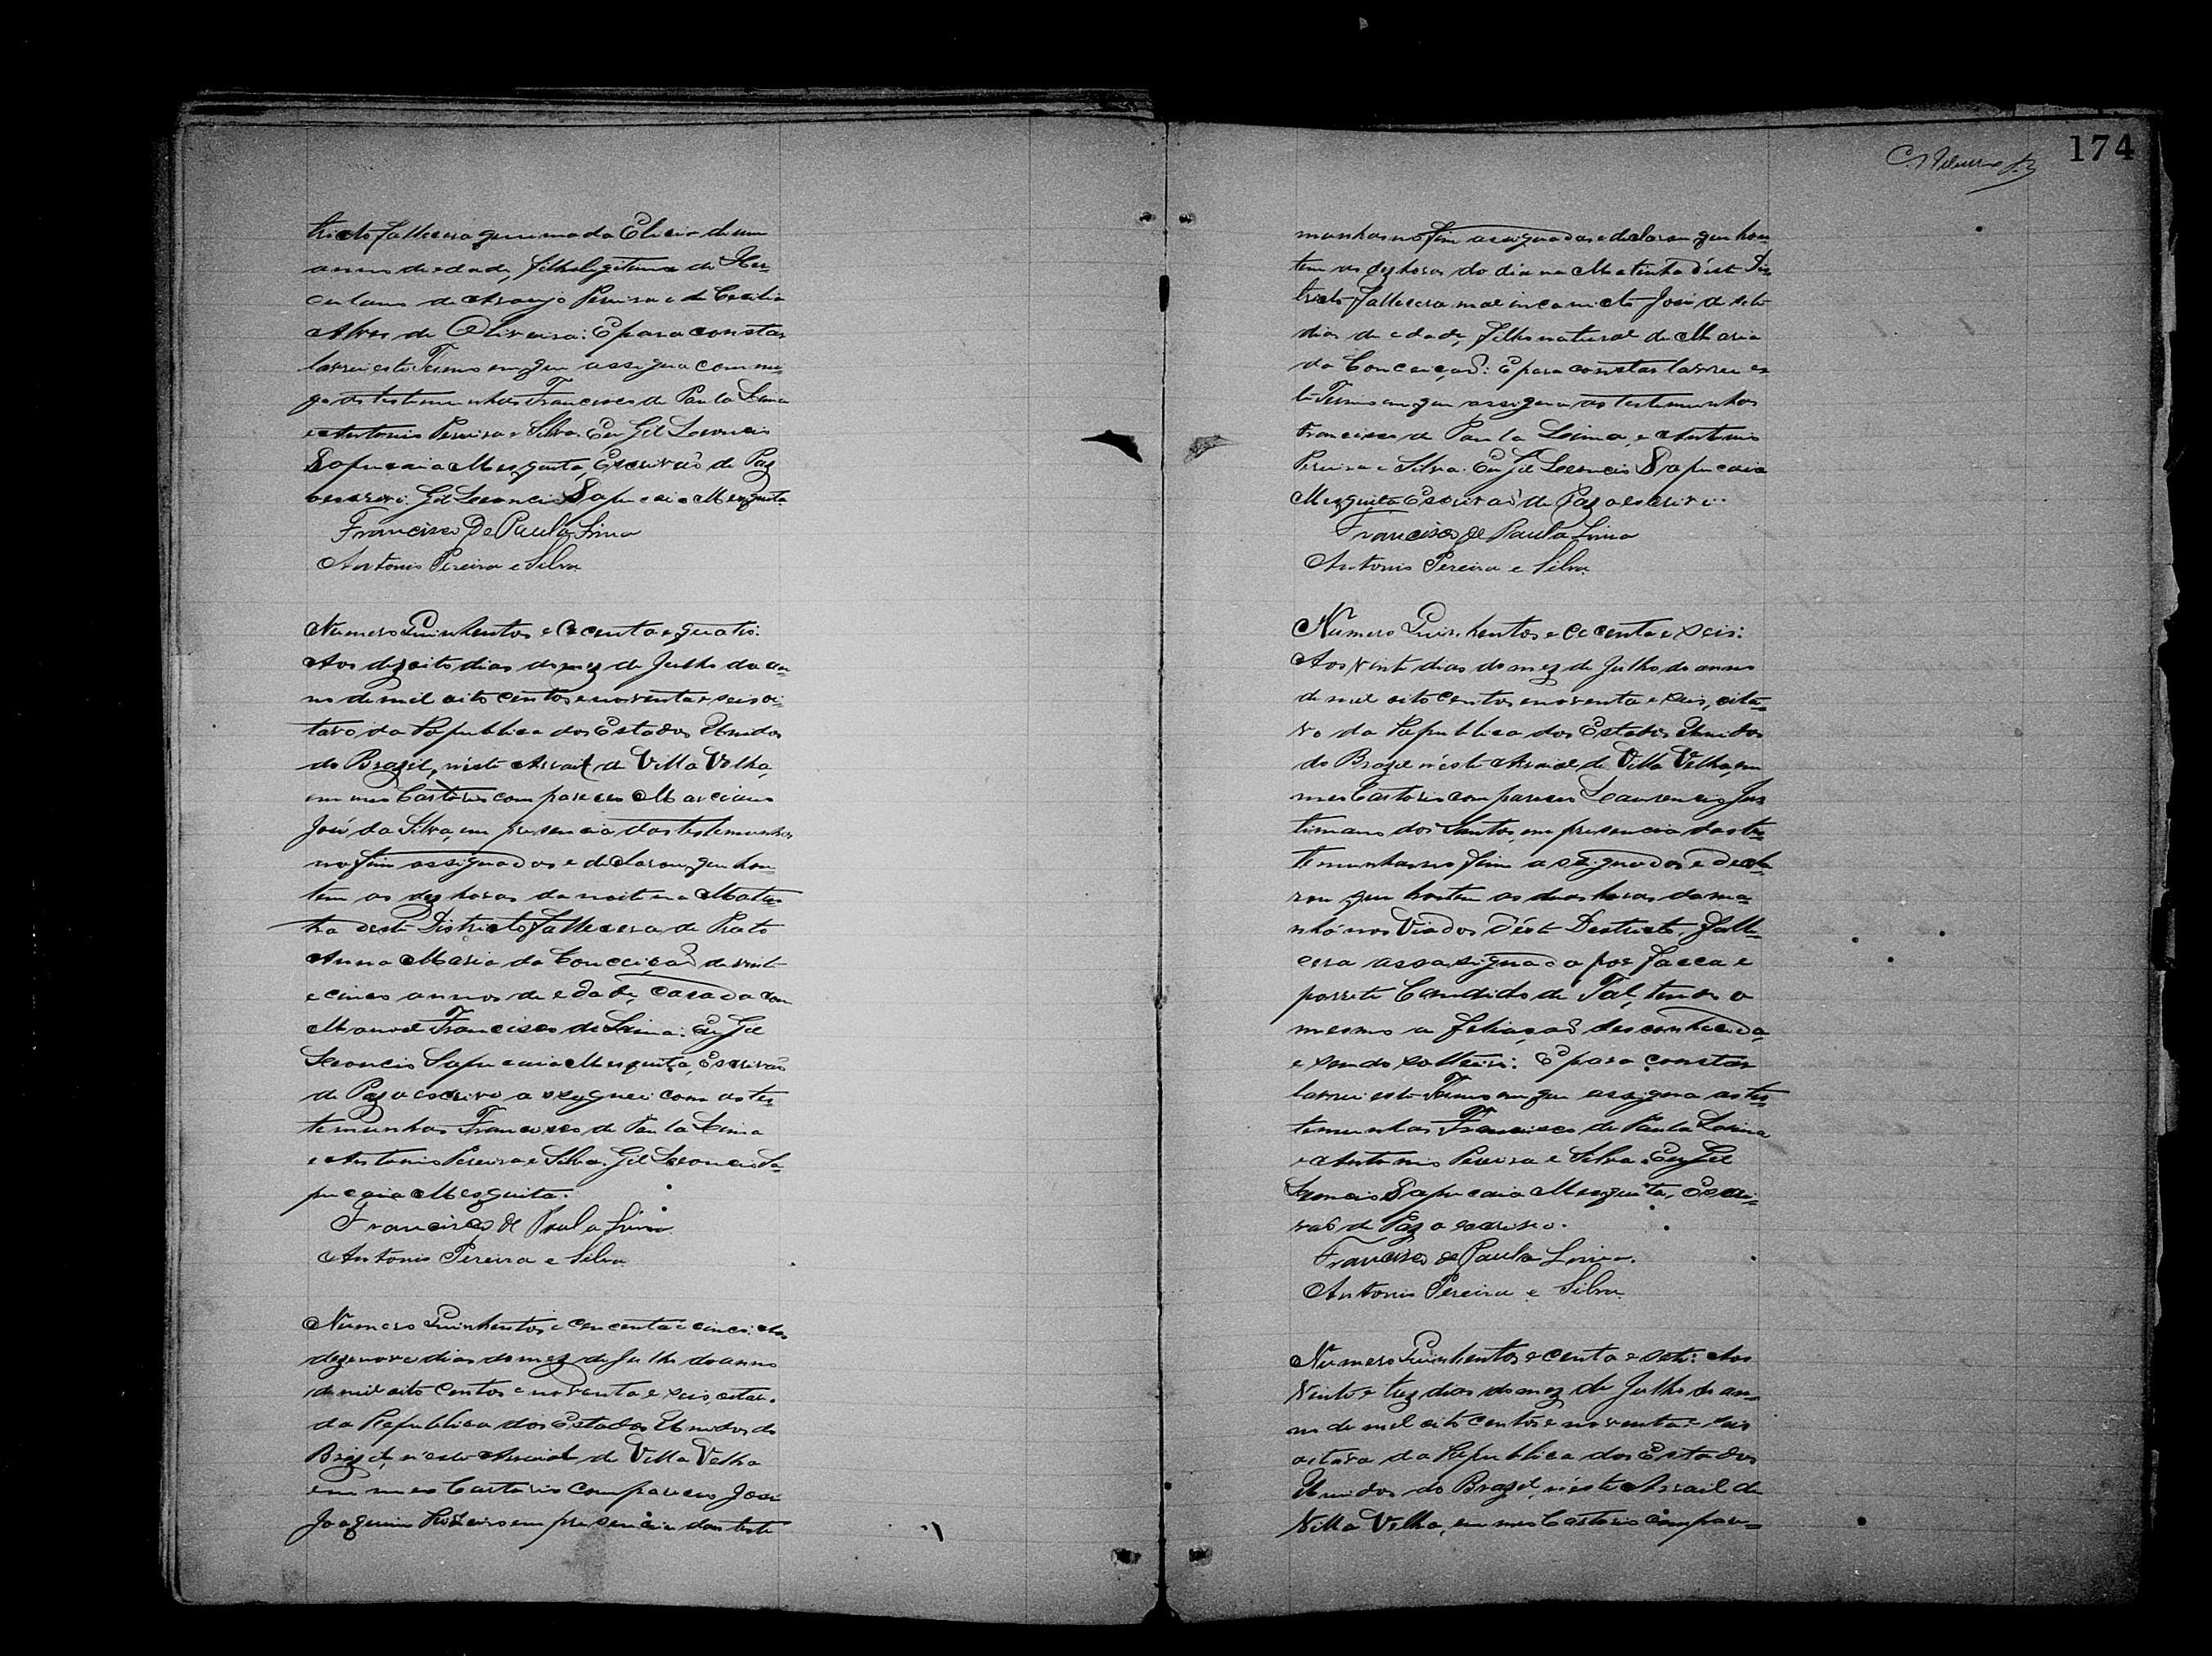 tricto fallecera queimada Elisia de um
anno de edade, filha legitima de Her-
culano de Araujo Pereira e de Cecilia
Alves de Oliveira: E para constar
lavrei este Termo em que assigna commi-
go as testemunhas Francisco de Paula Lima
e Antonio Pereira e Silva. Eu Gil Leoncio
Sapucaia Mesquita, Escrivaõ de Paz
o escrevi. Gil Leoncio Sapucaia Mesquita
Francisco De Paula Lima
Antonio Pereira e Silva
Numero Quinhentos e cecenta e quatro:
Aos dezoito dias do mez de Julho do an-
no de mil oito centos e noventa e seis oi-
tavo da Republica dos Estados Unidos
do Brazil, néste Arraial de Villa Velha,
em meo Cartorio compareceo Marciano
José da Silva, em presencia das testemunhas
no fim assignadas e declarou que hon-
tem as dez horas da noite na Matin-
ha deste Districto fallecera de Parto
Anna Maria da Conceiçaõ de vinte
e cinco annos de edade, casada com
Manoel Francisco de Lima: Eu Gil
Leoncio Sapucaia Mesquita, Escrivaõ
de Paz o escrevi e assignei com as tes-
temunhas Francisco de Paula Lima
e Antonio Pereira e Silva. Gil Leoncio Sa-
pucaia Mesquita.
Francisco de Paula Lima
Antonio Pereira e Silva
Numero Quinhentos e cecenta e cinco: Aos
dezenove dias do mez de Julho do anno
de mil oito centos e noventa e seis, oitavo
da Republica dos Estados Unidos do
Brazil, néste Arraial de Villa Velha
em meo Cartorio compareceo José
Joaquim em presencia das teste
174
munhas no fim assignadas e declarou que hon-
tem as dez horas do dia na Matinha déste Dis-
tricto fallecera José de sete
dias de edade, filho natural de Maria
da Conceiçaõ: E para constar lavrei es-
te Termo em que assigna as testemunhas
Francisco de Paula Lima, e Antonio
Pereira e Silva. Eu Gil Leoncio Sapucaia
Mesquita Escrivaõ de Paz o escrevi.
Francisco de Paula Lima
Antonio Pereira e Silva
Numero Quinhentos e cecenta e seis:
Aos vinte dias do mez de Julho do anno
de mil oito centos e noventa e seis, oita-
vo da Republica dos Estados Unidos
do Brazil néste Arraial de Villa Velha, em
meo Cartorio compareceo Laurencio Jus-
tiniano dos Santos, em presencia das tes-
temunhas no fim assignadas e decla-
rou que hontem as duas horas da ma-
nhã nos Viados déste Destricto, falle-
cera assasignado por facca e
porrete Candido de Tal, tendo o
mesmo a feliaçaõ desconhecida,
e sendo solteiro: E para constar
lavrei este Termo em que assigna as tes-
temunhas Francisco de Paula Lima
e Antonio Pereira e Silva. Eu Gil
Leoncio Sapucaia Mesquita, Escri-
vaõ de Paz o escrevo.
Francisco de Paula Lima.
Antonio Pereira e Silva
Numero Quinhentos e centa e sete: Aos
vinte e trez dias do mez de Julho do an-
no de mil oito centos e noventa e seis
oitavo da Republica dos Estados
Unidos do Brazil, néste Arraial de
Villa Velha, em meo Cartorio compare-